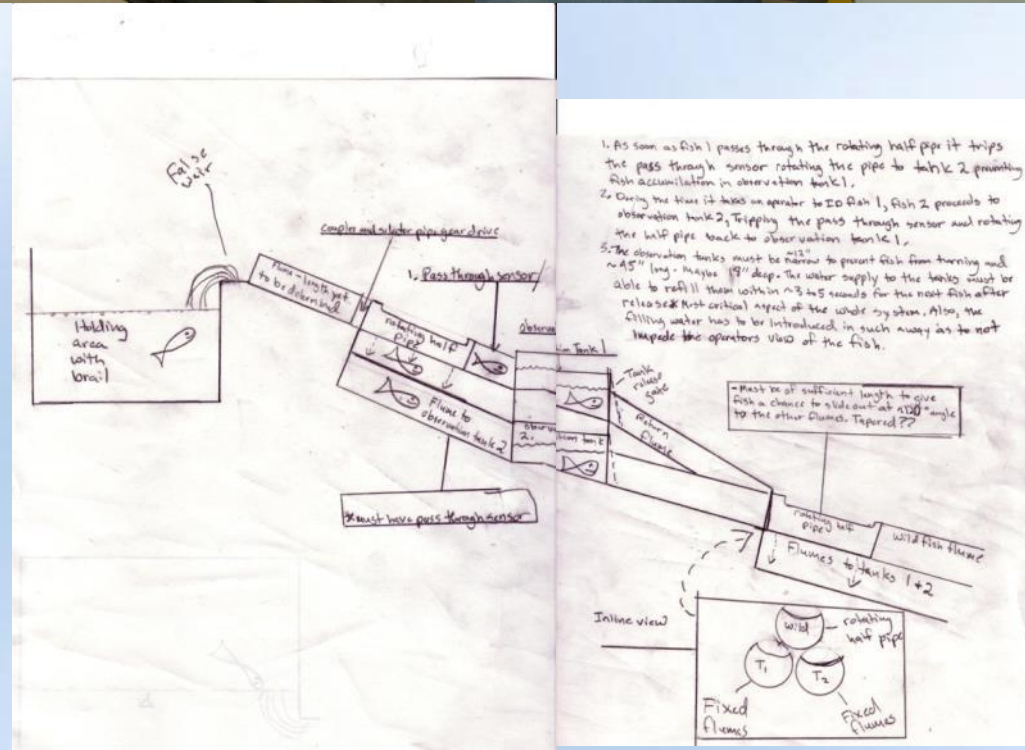 False
weir
Holding
area
with
brail
Flume - length yet
to be determined
coupler and rotator pipe gear drive
1. Pass through sensor
rotating half
pipe
Flume to
observation tank 2
*must have pass through sensor
observa
tion Tank 1
observa
2.
tion tank
Tank
release
gate
Return
flume
1. As soon as fish 1 passes through the rotating half pipe it trips
the pass through sensor rotating the pipe to tank 2 preventing
fish accumilation in observation tank 1.
2. During the time it takes an operator to ID fish 1, fish 2 proceeds to
observation tank 2, Tripping the pass through sensor and rotating
the half pipe back to observation tank 1.
3. The observation tanks must be narrow ~12" to prevent fish from turning and
~45" long. Maybe 18" deep. The water supply to the tanks must be
able to refill them within ~3 to 5 seconds for the next fish after
release* Most critical aspect of the whole system. Also, the
filling water has to be introduced in such away as to not
impede the operators view of the fish.
- Must be of sufficient length to give
fish a chance to slide out at ~120° angle
to the other flumes. Tapered??
rotating half
pipe
wild fish flume
Flumes to tanks 1+2
Inline view
wild
rotating
half pipe
T1
T2
Fixed
flumes
Fixed
flumes